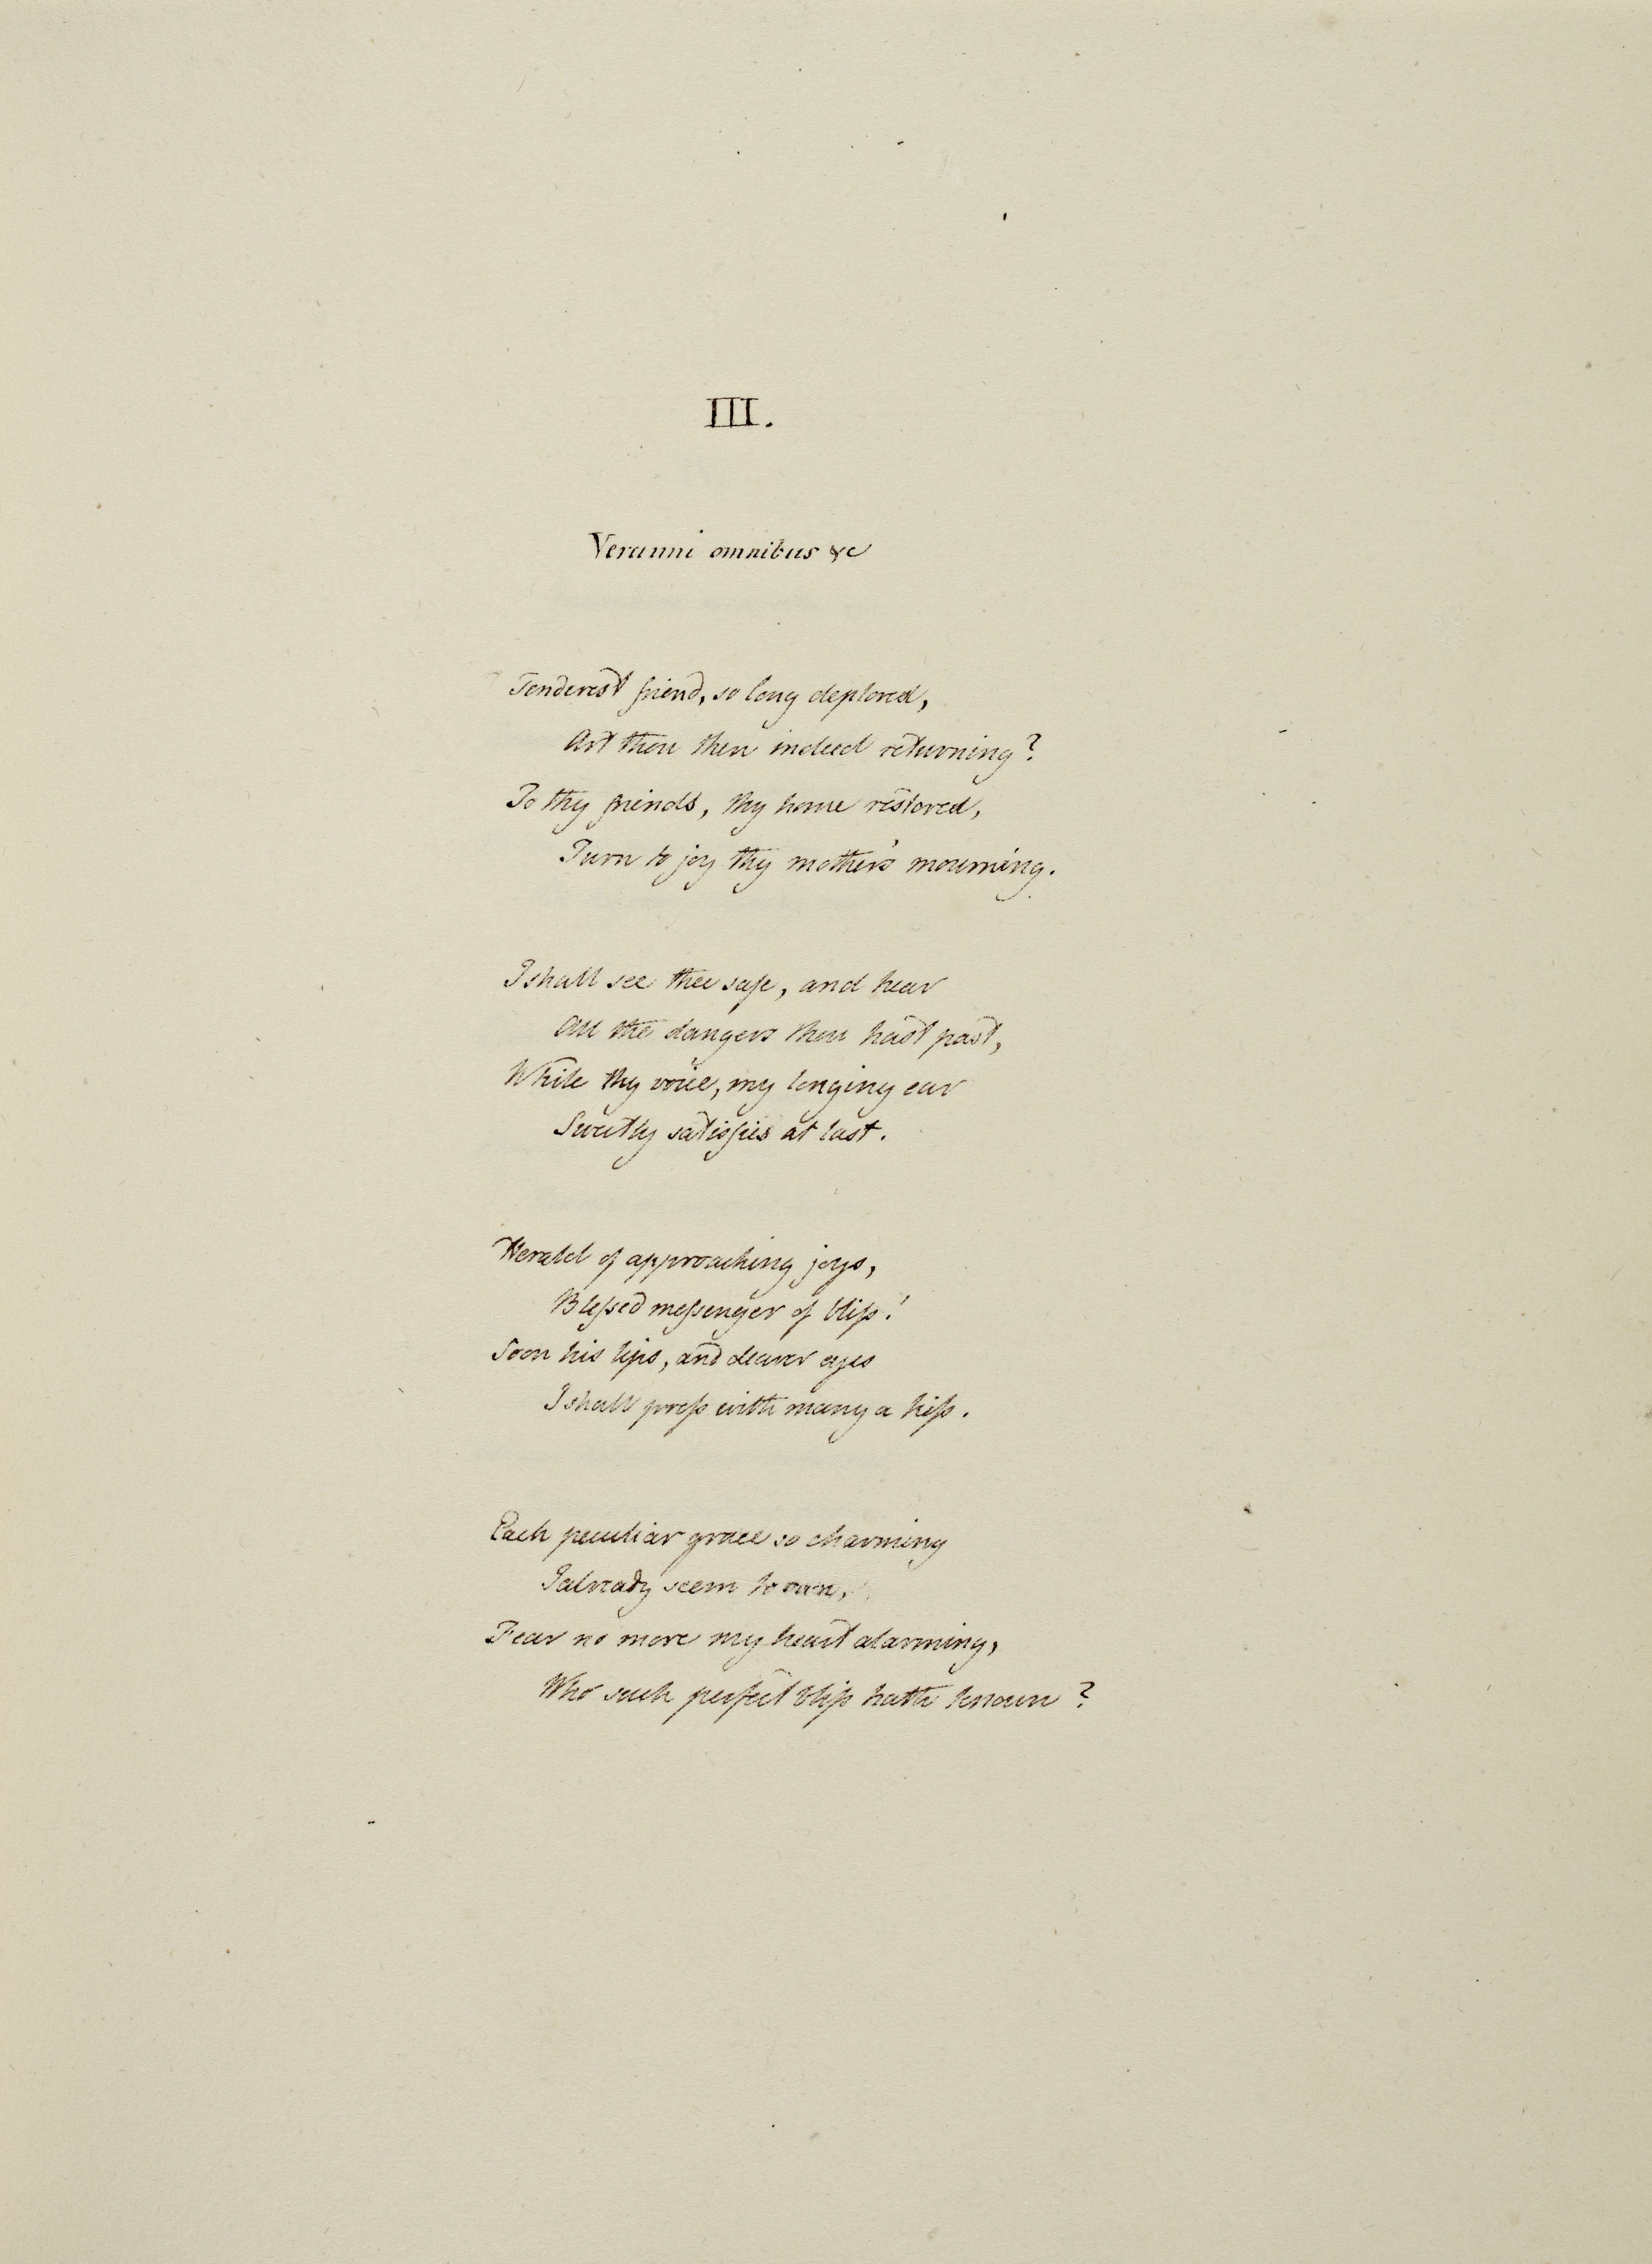 III.
Veranni omnibus &c
Tenderest friend, so long deplored,
Art thou then indeed returning?
To thy friends, thy home restored,
Turn to joy thy mother's mourning.
I shall see thee safe, and hear
All the dangers thou hast past,
While thy voice, my longing ear
Sweetly satisfies at last.
Herald of approaching joys,
Blessed messenger of bliss!
Soon his lips, and dearer eyes
I shall press with many a kiss.
Each peculiar grace so charming
I already seem to own,
Fear no more my heart alarming,
Who such perfect bliss hath known?